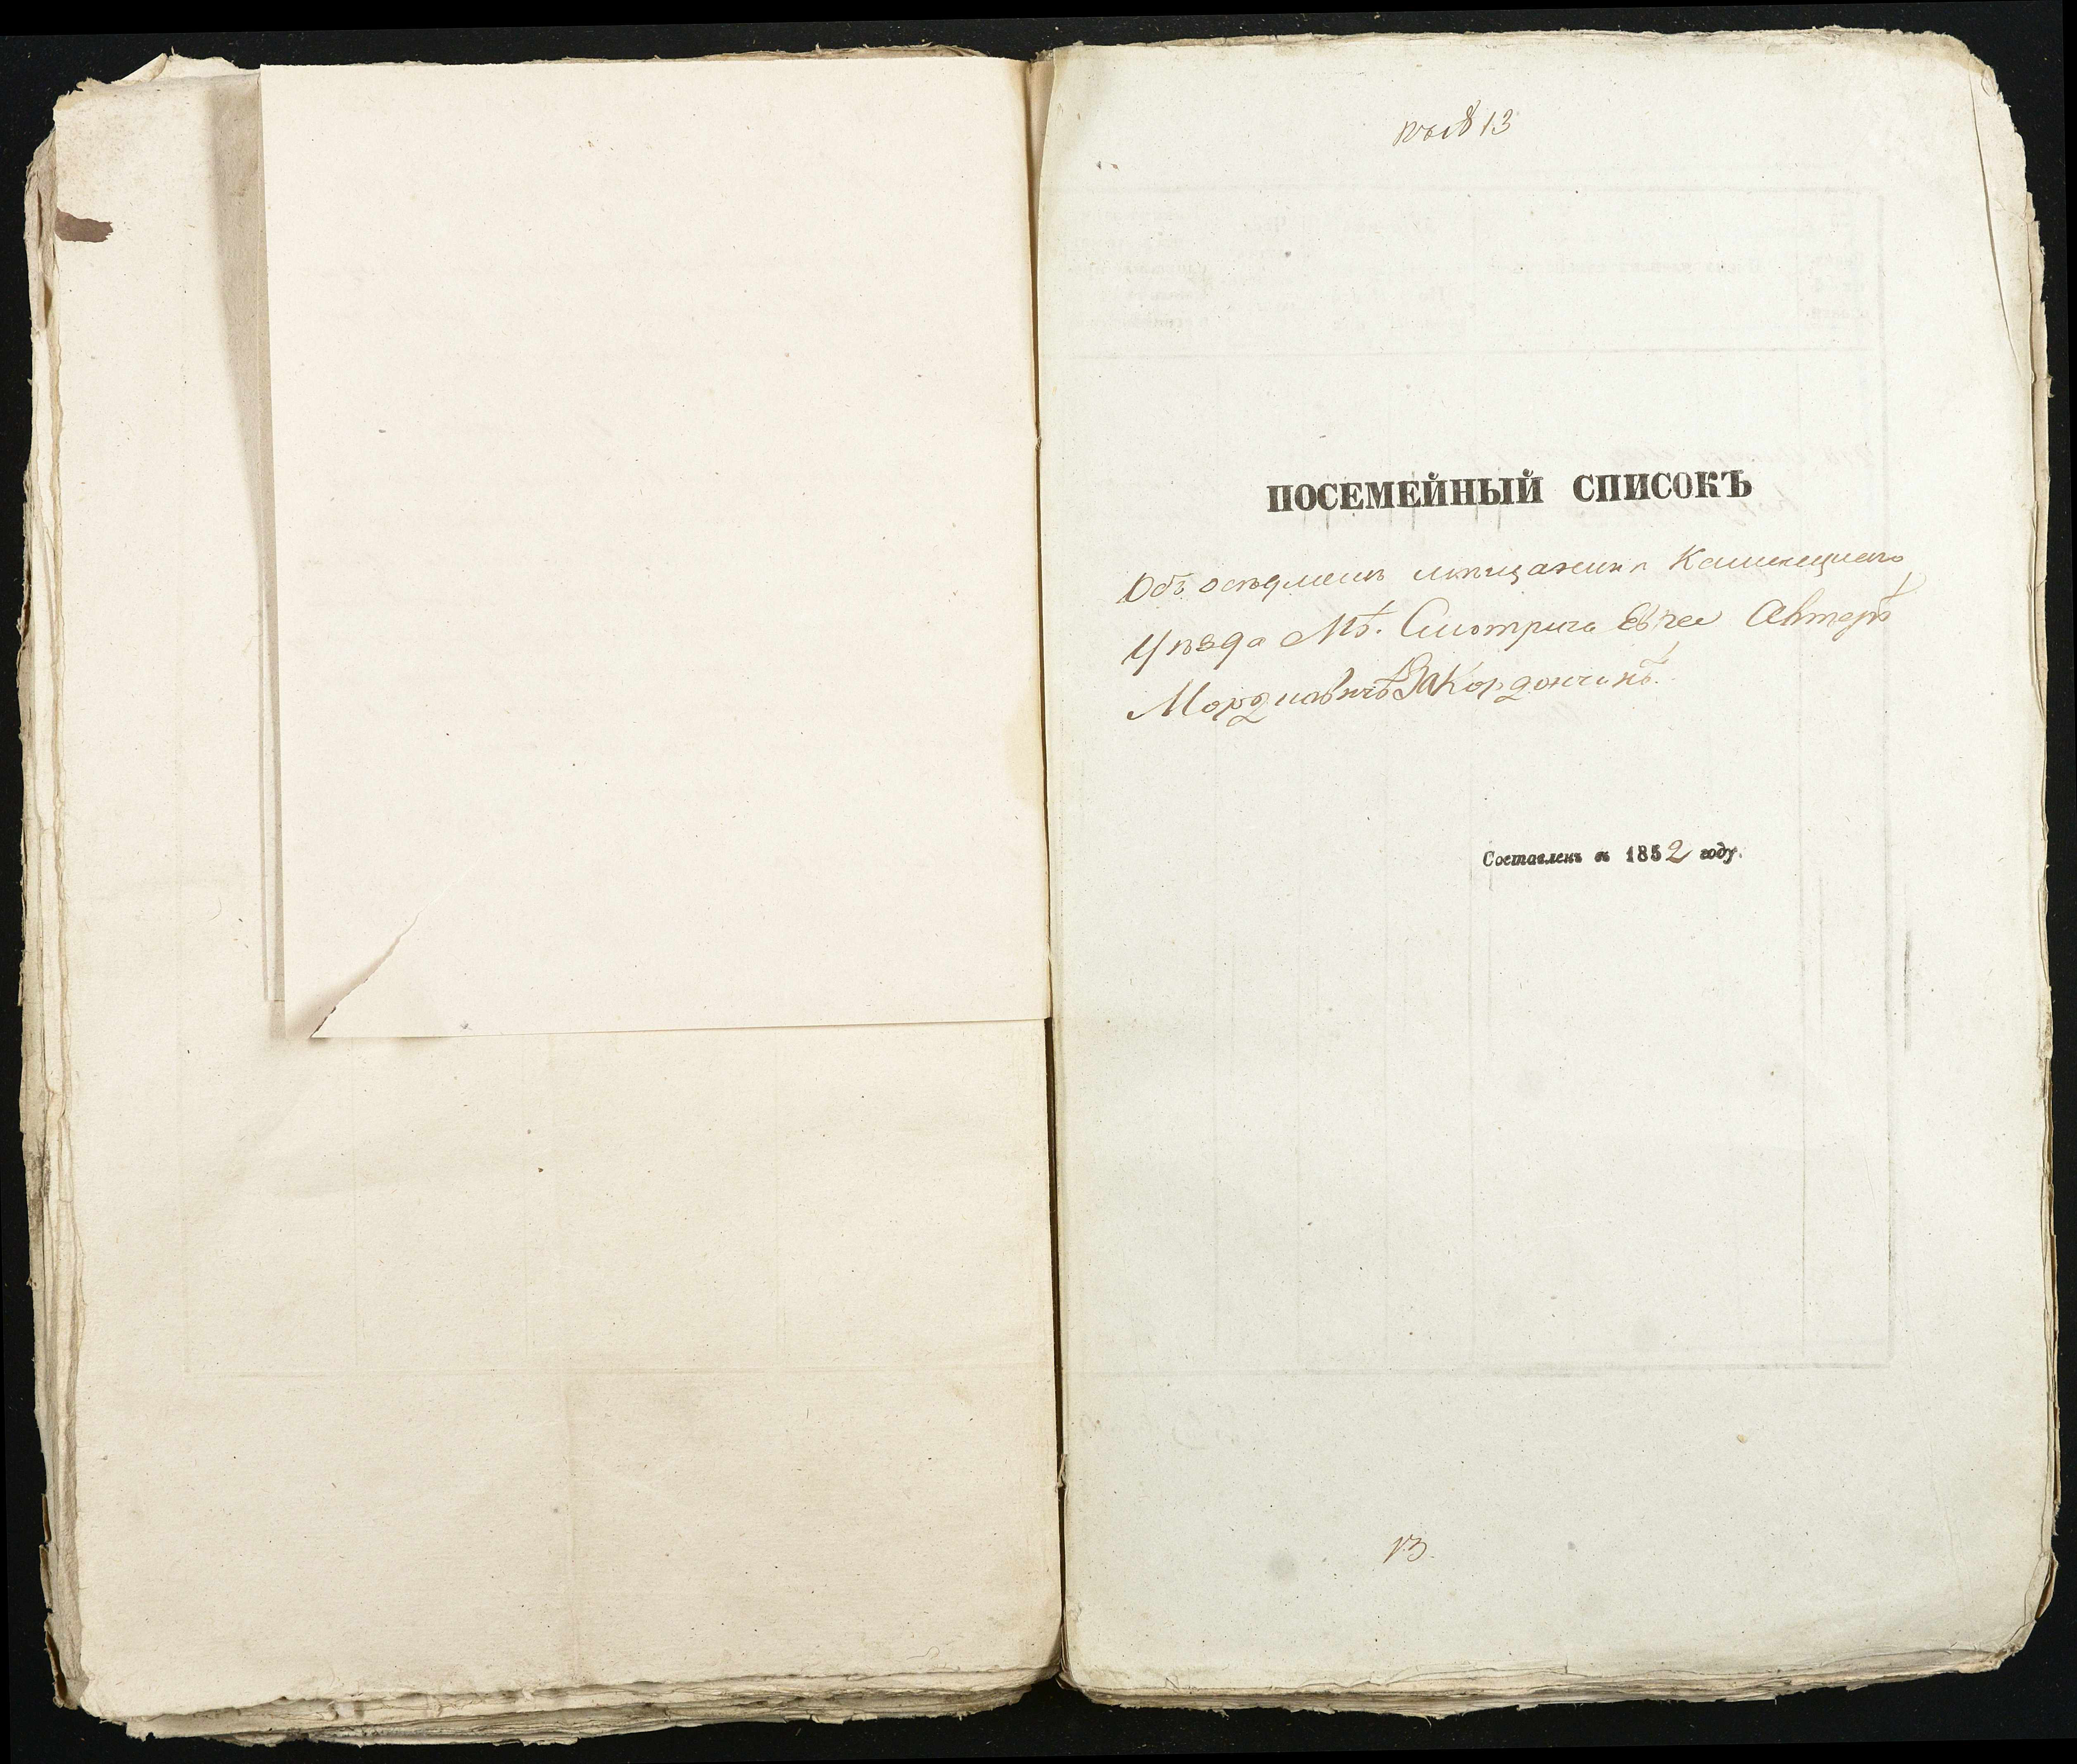 13
ПОСЕМЕЙНЫЙ СПИСОКЪ
Объ осѣдломъ мѣщанинѣ Каменецкаго
Уѣзда Мѣ. Смотрича Евреѣ
Мордковичѣ Закордончикѣ.
Составленъ въ 1852 году.
13.